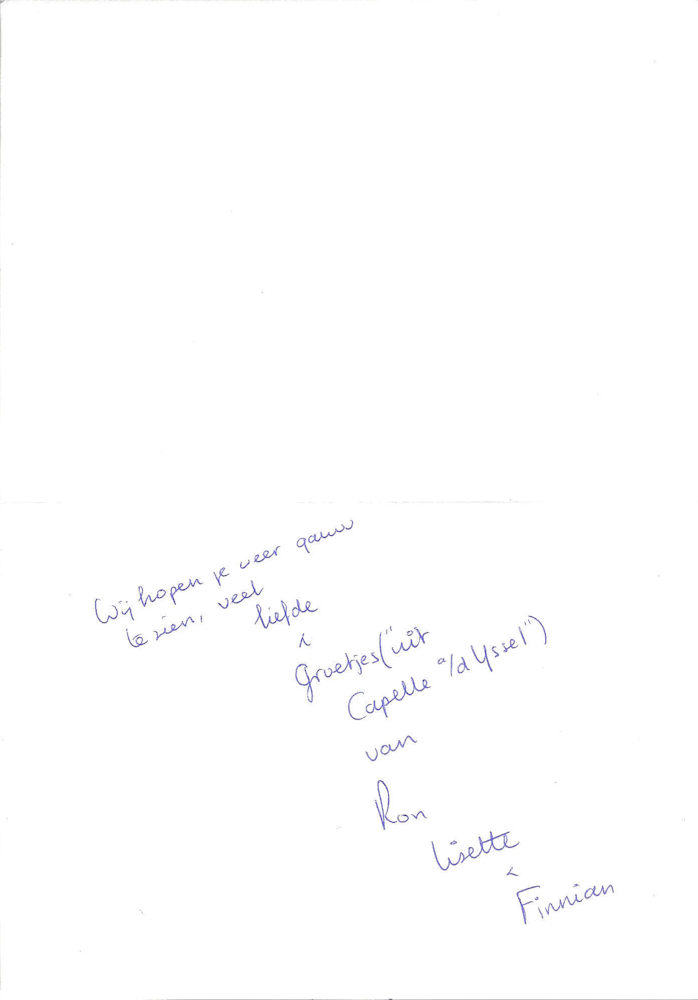 Wij hopen je weer gauw
te zien, veel
liefde
&
Groetjes ("uit
Capelle a/d Yssel")
van
Ron
Lisette
&
Finnian